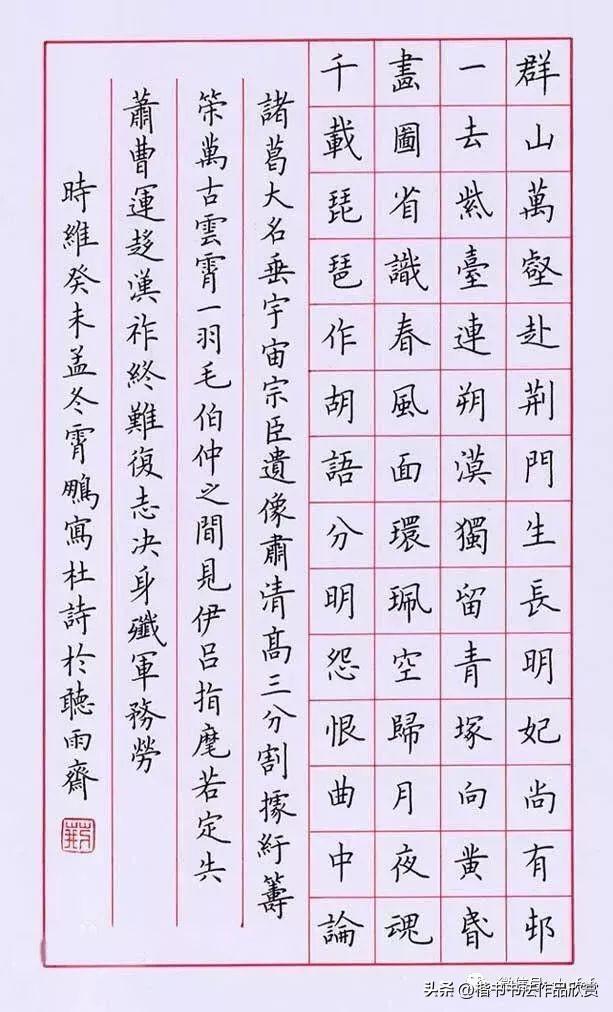 群山萬壑赴荆門生長明妃尚有邨
一去紫臺連朔漠獨留青塚向黄昏
畫圖省識春風面環珮空歸月夜魂
千載琵琶作胡語分明怨恨曲中論
諸葛大名垂宇宙宗臣遺像肅清高三分割據紆籌
策萬古雲霄一羽毛伯仲之間見伊吕指麾若定失
蕭曹運趍漢祚終難復志决身殲軍務勞
時維癸未孟冬霄鵬寫杜詩於聽雨齋
头条 @楷书书法作品欣赏